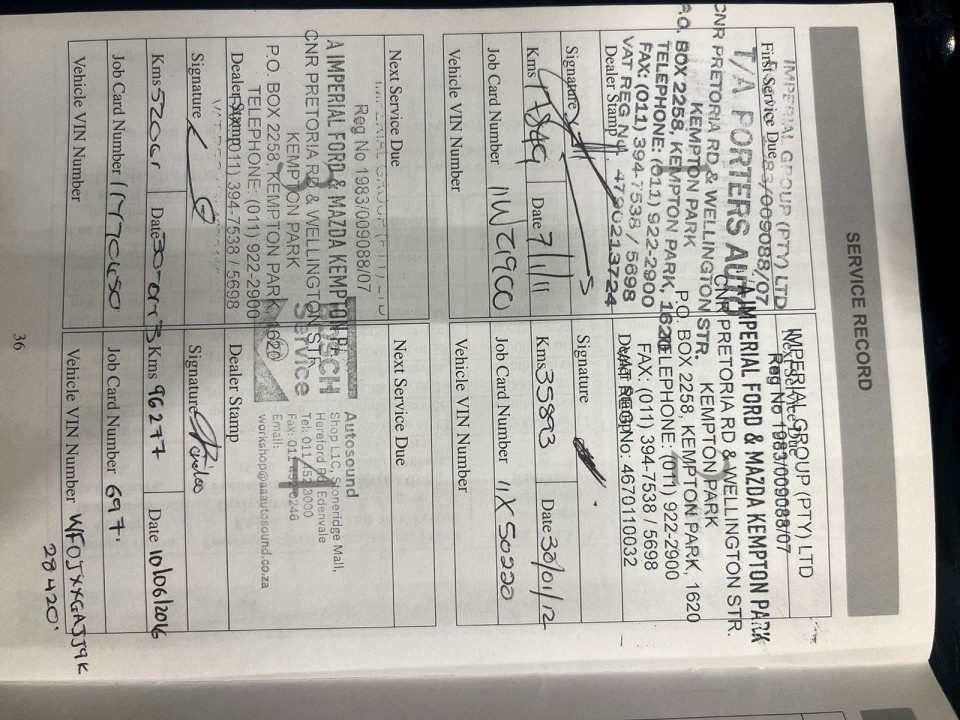 SERVICE RECORD
IMPERIAL GROUP (PTY) LTD
First Service Due 83/009088/07
T/A PORTERS AUTO
CNR PRETORIA RD & WELLINGTON STR.
KEMPTON PARK
P.O. BOX 2258, KEMPTON PARK, 1620
TELEPHONE: (011) 922-2900
FAX: (011) 394-7538 / 5698
VAT REG No. 4790213724
Dealer Stamp
Signature
Kms Date 7/1/11
Job Card Number
Vehicle VIN Number
IMPERIAL GROUP (PTY) LTD
Next Service Due
Reg No 1983/009088/07
IMPERIAL FORD & MAZDA KEMPTON PARK
CNR PRETORIA RD & WELLINGTON STR.
KEMPTON PARK
P.O. BOX 2258, KEMPTON PARK, 1620
TELEPHONE: (011) 922-2900
FAX: (011) 394-7538 / 5698
VAT REG No: 4670110032
Signature
Kms 35893 Date 30/01/12
Job Card Number 11X50220
Vehicle VIN Number
Next Service Due
Reg No 1983/009088/07
IMPERIAL FORD & MAZDA KEMPTON
CNR PRETORIA RD & WELLINGTON STR
KEMPTON PARK
P.O. BOX 2258, KEMPTON PARK 1620
TELEPHONE: (011) 922-2900
Dealer Stamp 011) 394-7538 / 5698
Signature
Kms Date
Job Card Number
Vehicle VIN Number
Next Service Due
Service
Autosound
Shop L1C, Stoneridge Mall,
Hereford Rd, Edenvale
Tel: 011 452 3000
Fax: 011
Email:
workshop@aaautosound.co.za
Dealer Stamp
Signature
Kms 96277 Date 10/06/2016
Job Card Number 697.
Vehicle VIN Number WF0JXXGAJJ9K
28420.
36